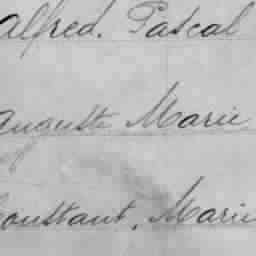 Alfred. Pascal
Auguste Marie
Constant, Marie